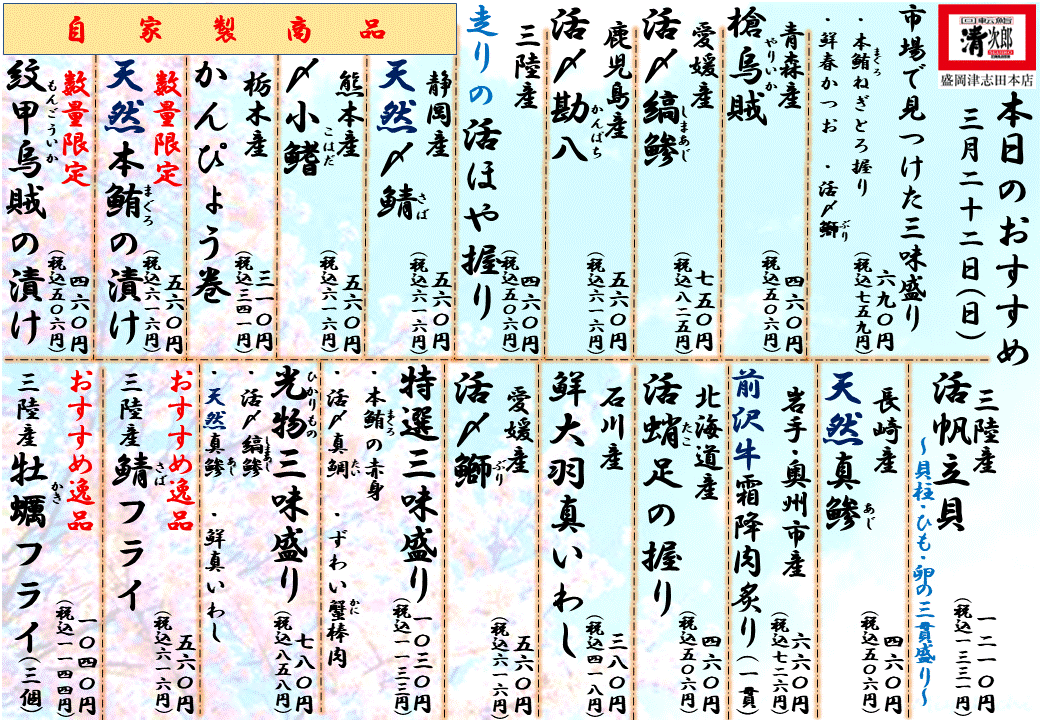 回転鮨
清次郎
盛岡津志田本店
本日のおすすめ
三月二十二日（日）
市場で見つけた三味盛り
・本鮪ねぎとろ握り
まぐろ
・鮮春かつお ・活〆鰤
ぶり
六九〇円
（税込七五九円）
青森産
槍烏賊
やりいか
四六〇円
（税込五〇六円）
愛媛産
活〆縞鰺
しまあじ
七五〇円
（税込八二五円）
鹿児島産
活〆勘八
かんぱち
五六〇円
（税込六一六円）
三陸産
走りの活ほや握り
四六〇円
（税込五〇六円）
自家製商品
静岡産
天然〆鯖
さば
五六〇円
（税込六一六円）
熊本産
〆小鰭
こはだ
五六〇円
（税込六一六円）
栃木産
かんぴょう巻
三一〇円
（税込三四一円）
数量限定
天然本鮪の漬け
まぐろ
五六〇円
（税込六一六円）
数量限定
紋甲烏賊の漬け
もんごういか
四六〇円
（税込五〇六円）
三陸産
活帆立貝
～貝柱・ひも・卵の三貫盛り～
一二一〇円
（税込一三三一円）
長崎産
天然真鰺
あじ
四六〇円
（税込五〇六円）
岩手・奥州市産
前沢牛霜降肉炙り（一貫）
六六〇円
（税込七二六円）
北海道産
活蛸足の握り
たこ
四六〇円
（税込五〇六円）
石川産
鮮大羽真いわし
三八〇円
（税込四一八円）
愛媛産
活〆鰤
ぶり
五六〇円
（税込六一六円）
特選三味盛り
・本鮪の赤身 ・ずわい蟹棒肉
まぐろ
かに
・活〆真鯛
たい
一〇三〇円
（税込一一三三円）
光物三味盛り
ひかりもの
・活〆縞鰺
しまあじ
・天然真鰺 ・鮮真いわし
あじ
七八〇円
（税込八五八円）
おすすめ逸品
三陸産鯖フライ
さば
五六〇円
（税込六一六円）
おすすめ逸品
三陸産牡蠣フライ（三個）
かき
一〇四〇円
（税込一一四四円）